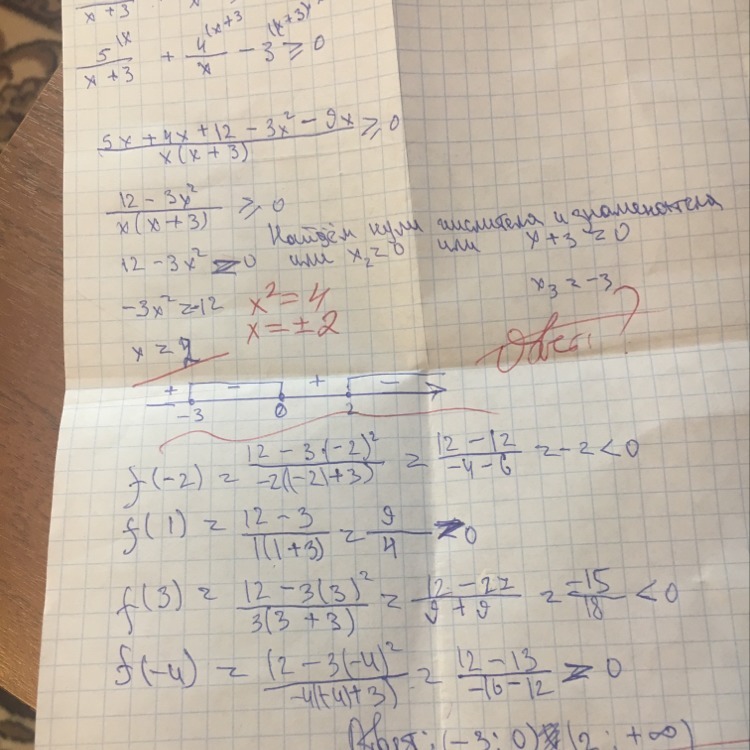 x+3
5^(x / x+3 + 4^(x+3 / x - 3^(x+3) ≥ 0
5x + 4x + 12 - 3x² - 9x / x(x+3) ≥ 0
12 - 3x² / x(x+3) ≥ 0
Найдём нули числителя и знаменателя
12 - 3x² = 0 или x₂ = 0 или x+3 = 0
-3x² = -12 x² = 4 x₃ = -3
x = 2 x = ±2 Ответ?
+ - + -
-3 0 2
f(-2) = 12 - 3·(-2)² / -2((-2)+3) = 12 - 12 / -4 - 6 = -2 < 0
f(1) = 12 - 3 / 1(1+3) = 9 / 4 > 0
f(3) = 12 - 3(3)² / 3(3+3) = 12 - 27 / 9 + 9 = -15 / 18 < 0
f(-4) = 12 - 3(-4)² / -4((-4)+3) = 12 - 13 / -16 - 12 > 0
Ответ: (-3; 0) (2; +∞)